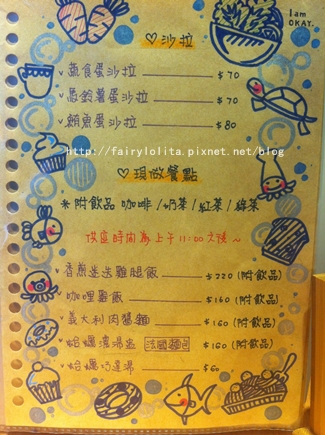 I am OKAY.
♡ 沙拉
蔬食蛋沙拉 $70
馬鈴薯蛋沙拉 $70
鮪魚蛋沙拉 $80
http://fairylolita.pixnet.net/blog
♡ 現做餐點
* 附飲品 咖啡 / 奶茶 / 紅茶 / 綠茶
供應時間為上午11:00之後~
香煎迷迭雞腿飯 $220 (附飲品)
咖哩醬飯 $160 (附飲品)
義大利肉醬麵 $160 (附飲品)
蛤蠣濃湯 法國麵包 $160 (附飲品)
蛤蠣巧達湯 $60